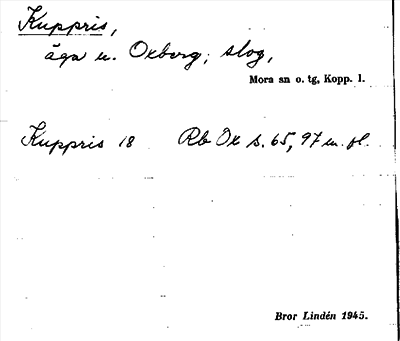 Kuppris,
äga u. Oxberg, slog,
Mora sn o. tg, Kopp. l.
Kuppris 18 Rb Ox s. 65, 97 m. fl.
Bror Lindén 1945.